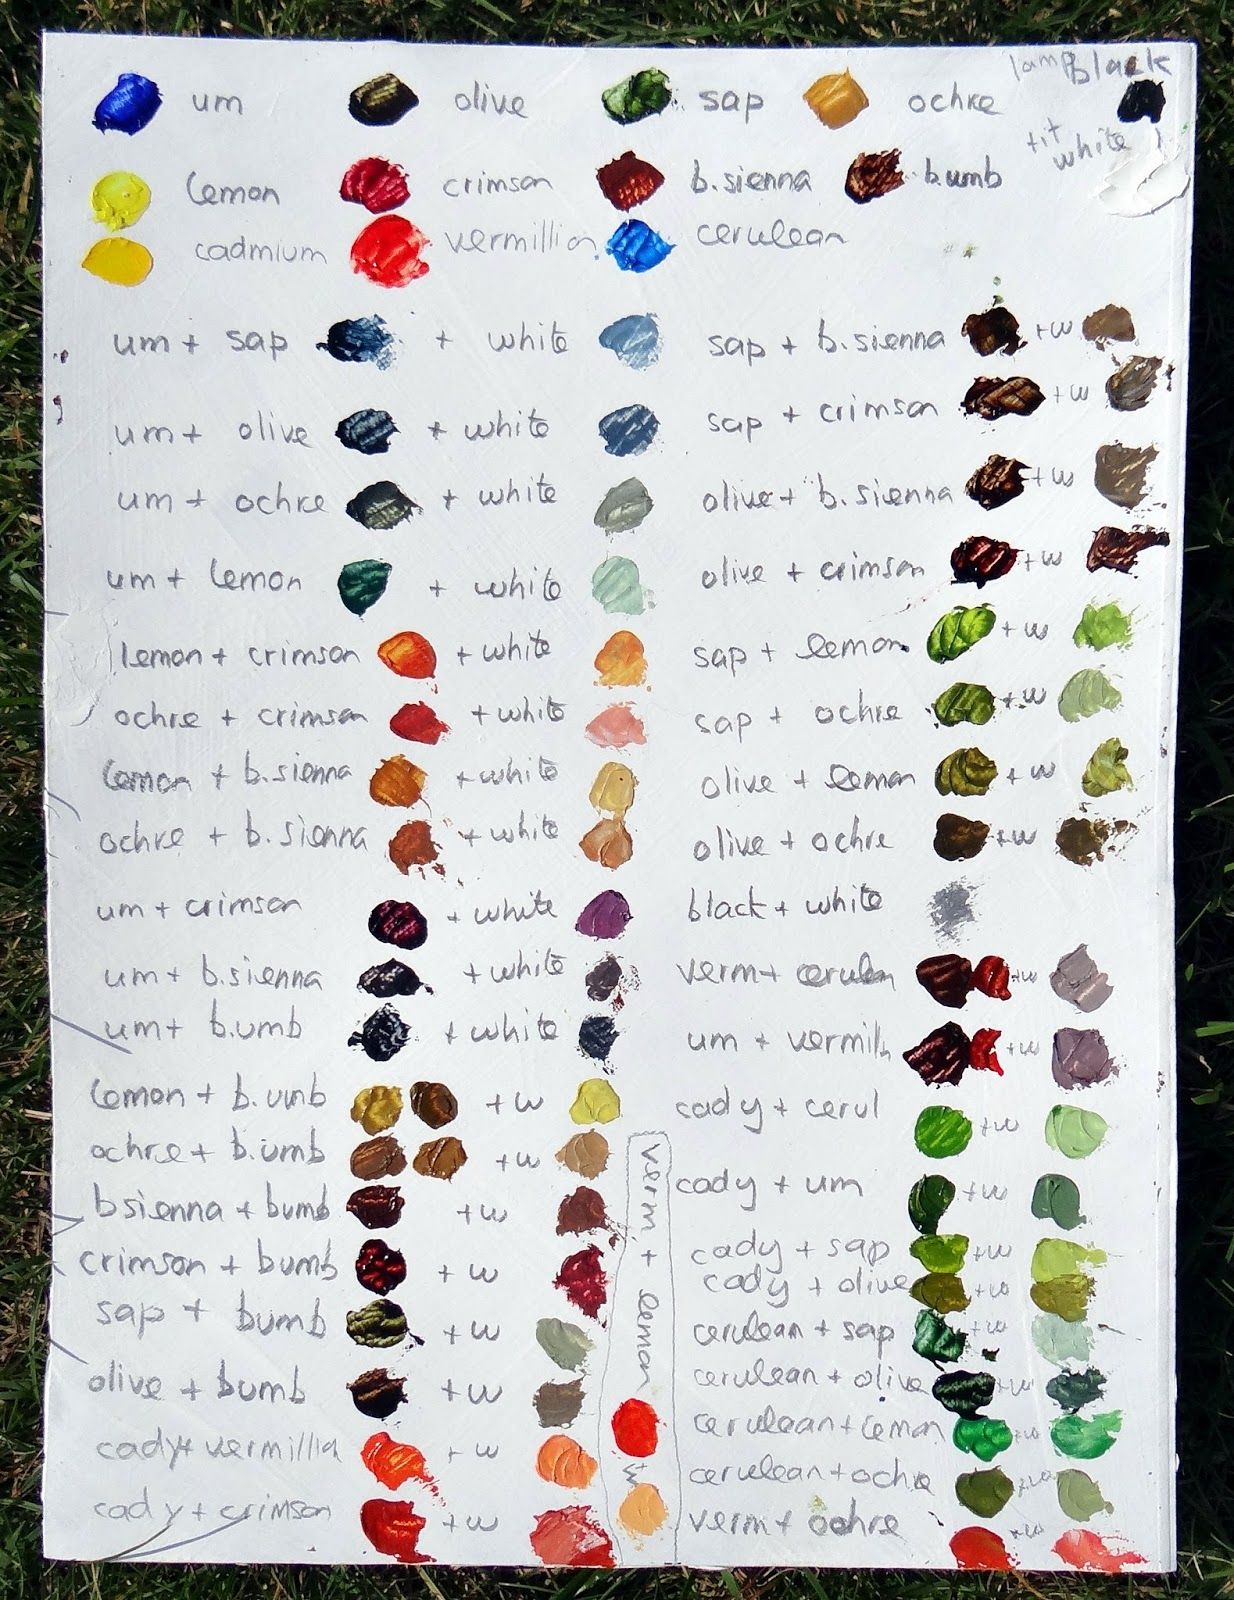 um olive sap ochre lamp black
lemon crimson b.sienna b.umb tit white
cadmium vermillion cerulean
um + sap + white
um + olive + white
um + ochre + white
um + lemon + white
lemon + crimson + white
ochre + crimson + white
lemon + b.sienna + white
ochre + b.sienna + white
um + crimson + white
um + b.sienna + white
um + b.umb + white
lemon + b.umb + w
ochre + b.umb + w
bsienna + bumb + w
crimson + bumb + w
sap + bumb + w
olive + bumb + w
cady + vermillia + w
cady + crimson + w
verm + lemon + w
sap + b.sienna + w
sap + crimson + w
olive + b.sienna + w
olive + crimson + w
sap + lemon + w
sap + ochre + w
olive + lemon + w
olive + ochre + w
black + white
verm + cerulen + w
um + vermilli + w
cady + cerul + w
cady + um + w
cady + sap + w
cady + olive + w
cerulean + sap + w
cerulean + olive + w
cerulean + lemon + w
cerulean + ochre + w
verm + ochre + w